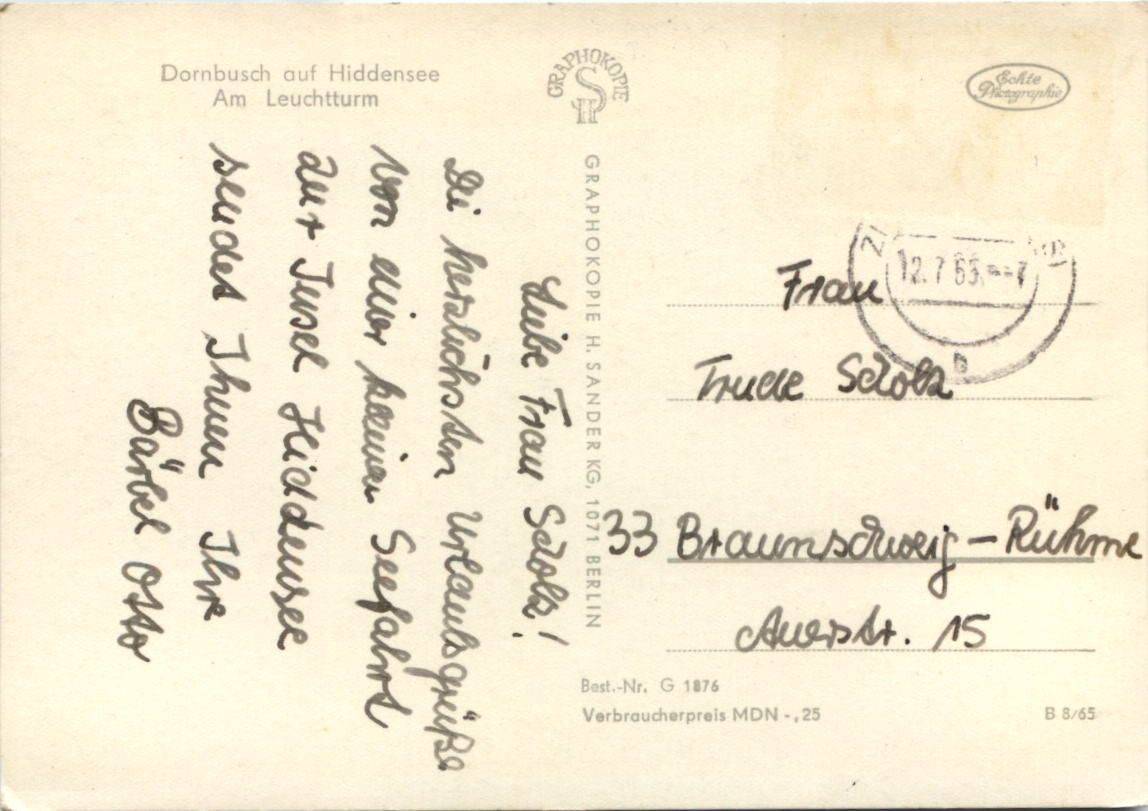 Dornbusch auf Hiddensee
Am Leuchtturm
Liebe Frau Scholz!
Die herzlichsten Urlaubsgrüße
von einer kleinen Seefahrt
zur Insel Hiddensee
sendet Ihnen Ihre
Bärbel Otto
GRAPHOKOPIE
H S
GRAPHOKOPIE H. SANDER KG, 1071 BERLIN
Echte
Photographie
12.7.65
Frau
Trude Scholz
33 Braunschweig-Rühme
Auerstr. 15
Best.-Nr. G 1876
Verbraucherpreis MDN -,25
B 8/65